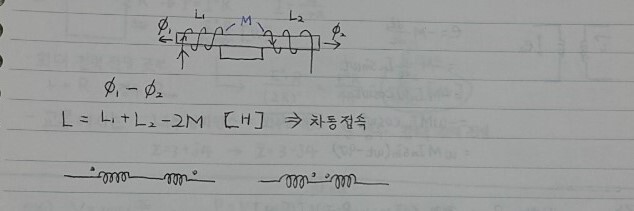 L₁ M L₂
ϕ₁ ϕ₂
ϕ₁ - ϕ₂
L = L₁ + L₂ - 2M [H] ⇒ 차동접속